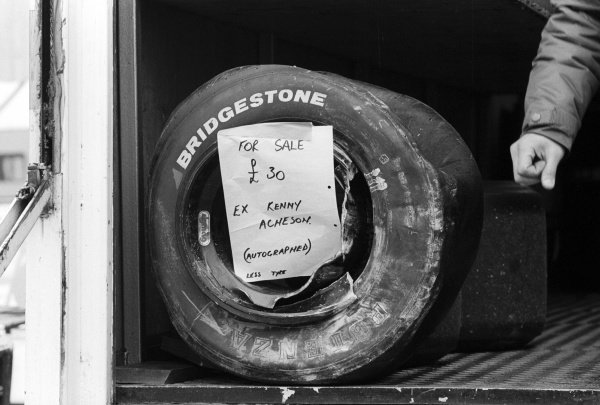 BRIDGESTONE
FOR SALE
£30
EX KENNY
ACHESON
(AUTOGRAPHED)
LESS TYRE
POTENZA